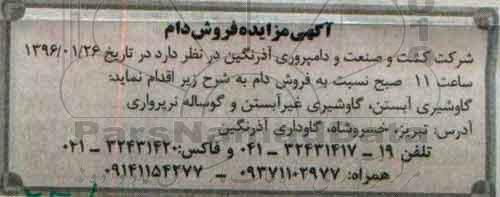 آگهی مزایده فروش دام
شرکت کشت و صنعت و دامپروری آذرنگین در نظر دارد در تاریخ ۱۳۹۶/۰۱/۲۶
ساعت ۱۱ صبح نسبت به فروش دام به شرح زیر اقدام نماید:
گاوشیری آبستن، گاوشیری غیرآبستن و گوساله نرپرواری
آدرس: تبریز، خسروشاه، گاوداری آذرنگین
تلفن ۱۹ ـ ۳۲۴۳۱۴۱۷ ـ ۰۴۱ و فاکس: ۳۲۴۳۱۴۲۰ ـ ۰۲۱
همراه: ۰۹۳۷۱۱۰۲۹۷۷ ـ ۰۹۱۴۱۱۵۴۲۷۷